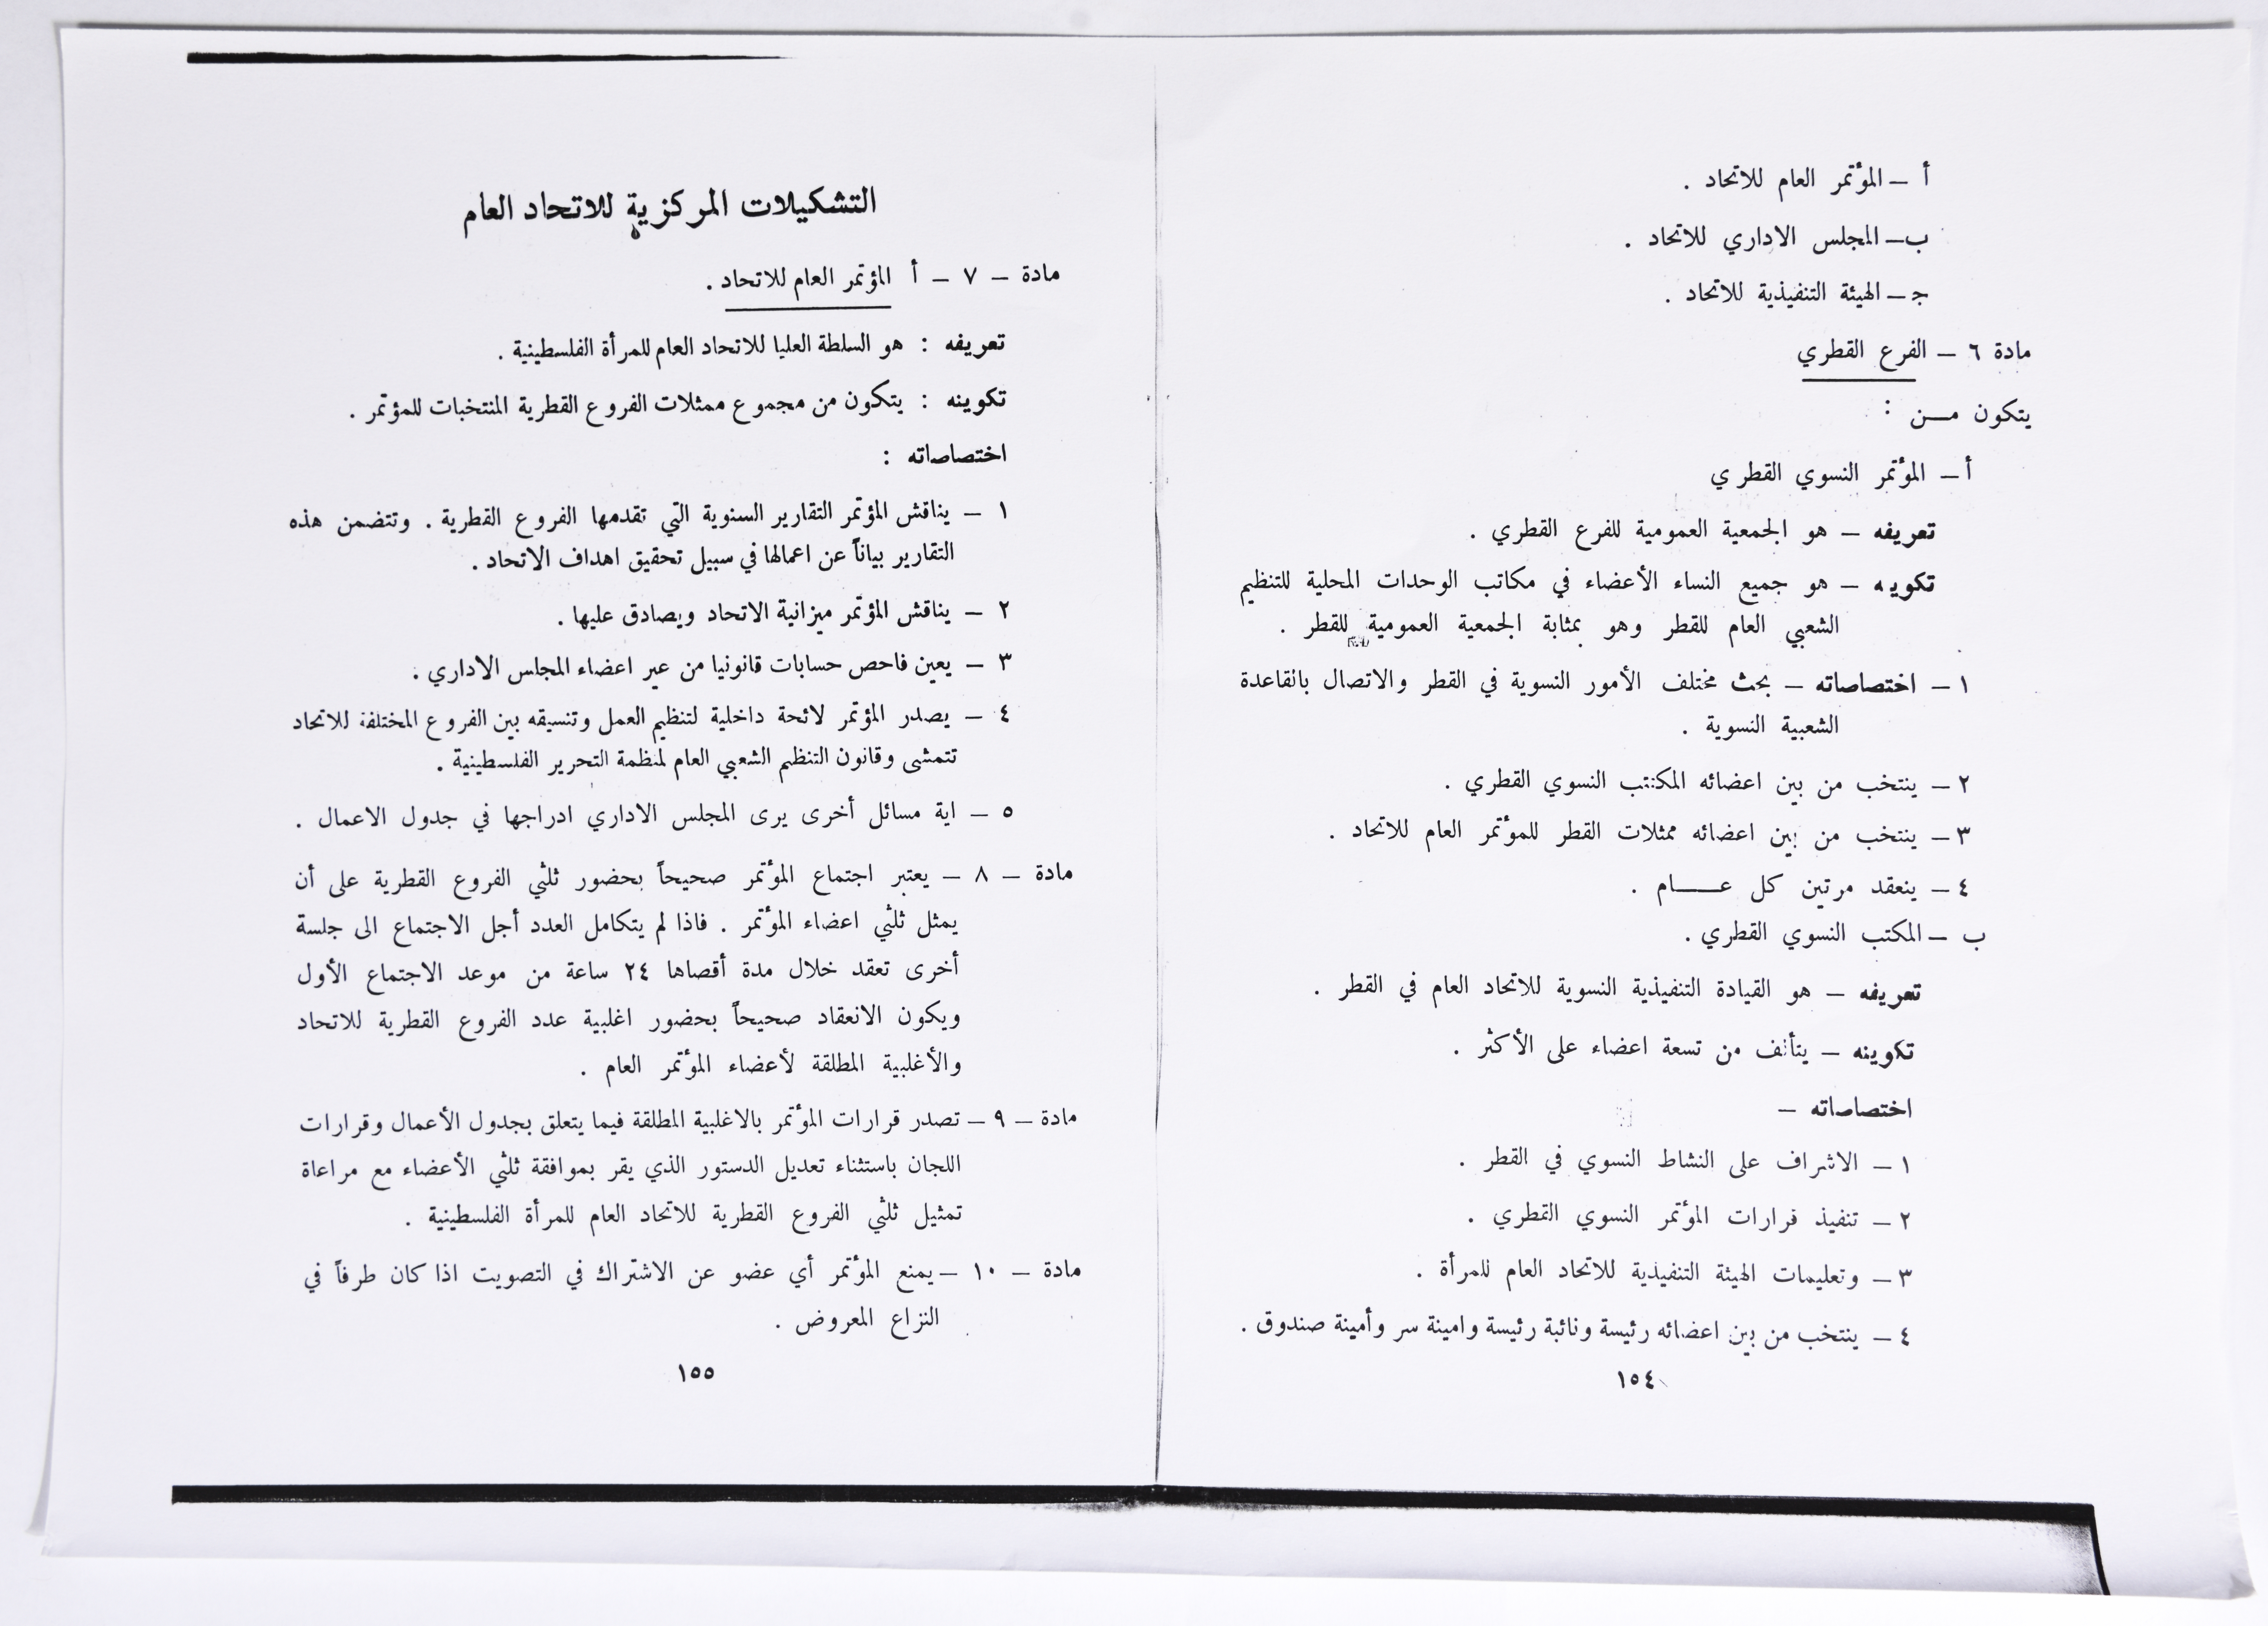 أ – المؤتمر العام للاتحاد .
ب – المجلس الاداري للاتحاد .
ج – الهيئة التنفيذية للاتحاد .
مادة ٦ – الفرع القطري
يتكون مـــن :
أ – المؤتمر النسوي القطري
تعريفه – هو الجمعية العمومية للفرع القطري .
تكوينه – هو جميع النساء الأعضاء في مكاتب الوحدات المحلية للتنظيم
الشعبي العام للقطر وهو بمثابة الجمعية العمومية للقطر .
١ – اختصاصاته – بحث مختلف الأمور النسوية في القطر والاتصال بالقاعدة
الشعبية النسوية .
٢ – ينتخب من بين اعضائه المكتب النسوي القطري .
٣ – ينتخب من بين اعضائه ممثلات القطر للمؤتمر العام للاتحاد .
٤ – ينعقد مرتين كل عـــــام .
ب – المكتب النسوي القطري .
تعريفه – هو القيادة التنفيذية النسوية للاتحاد العام في القطر .
تكوينه – يتألف من تسعة اعضاء على الأكثر .
اختصاصاته –
١ – الاشراف على النشاط النسوي في القطر .
٢ – تنفيذ قرارات المؤتمر النسوي القطري .
٣ – وتعليمات الهيئة التنفيذية للاتحاد العام للمرأة .
٤ – ينتخب من بين اعضائه رئيسة ونائبة رئيسة وامينة سر وأمينة صندوق .
١٥٤
التشكيلات المركزية للاتحاد العام
مادة – ٧ – أ المؤتمر العام للاتحاد .
تعريفه : هو السلطة العليا للاتحاد العام للمرأة الفلسطينية .
تكوينه : يتكون من مجموع ممثلات الفروع القطرية المنتخبات للمؤتمر .
اختصاصاته :
١ – يناقش المؤتمر التقارير السنوية التي تقدمها الفروع القطرية . وتتضمن هذه
التقارير بياناً عن اعمالها في سبيل تحقيق اهداف الاتحاد .
٢ – يناقش المؤتمر ميزانية الاتحاد ويصادق عليها .
٣ – يعين فاحص حسابات قانونيا من عير اعضاء المجلس الاداري .
٤ – يصدر المؤتمر لائحة داخلية لتنظيم العمل وتنسيقه بين الفروع المختلفة للاتحاد
تتمشى وقانون التنظم الشعبي العام لمنظمة التحرير الفلسطينية .
٥ – اية مسائل أخرى يرى المجلس الاداري ادراجها في جدول الاعمال .
مادة – ٨ – يعتبر اجتماع المؤتمر صحيحاً بحضور ثلثي الفروع القطرية على أن
يمثل ثلثي اعضاء المؤتمر . فاذا لم يتكامل العدد أجل الاجتماع الى جلسة
أخرى تعقد خلال مدة أقصاها ٢٤ ساعة من موعد الاجتماع الأول
ويكون الانعقاد صحيحاً بحضور اغلبية عدد الفروع القطرية للاتحاد
والأغلبية المطلقة لأعضاء المؤتمر العام .
مادة – ٩ – تصدر قرارات المؤتمر بالاغلبية المطلقة فيما يتعلق بجدول الأعمال وقرارات
اللجان باستثناء تعديل الدستور الذي يقر بموافقة ثلثي الأعضاء مع مراعاة
تمثيل ثلثي الفروع القطرية للاتحاد العام للمرأة الفلسطينية .
مادة – ١٠ – يمنع المؤتمر أي عضو عن الاشتراك في التصويت اذا كان طرفاً في
النزاع المعروض .
١٥٥